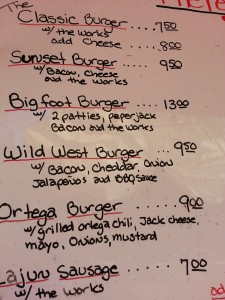 The
Classic Burger ....7.50
w/ the works
add cheese ..... 8.00
Sunset Burger ... 9.50
w/ Bacon, Cheese
and the works
Bigfoot Burger .... 13.00
w/ 2 patties, peperjack
Bacon and the works
Wild West Burger ... 9.50
w/ Bacon, cheddar, onion
Jalapeños and BBQ sauce
Ortega Burger ..... 9.00
w/ grilled ortega chili, Jack cheese,
mayo, Onions, mustard
Cajun Sausage ...... 7.00
w/ the works
ad